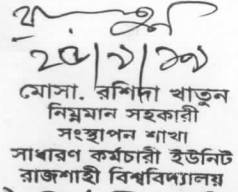 মোসা. রশিদা খাতুন
নিম্নমান সহকারী
সংস্থাপন শাখা
সাধারণ কর্মচারী ইউনিট
রাজশাহী বিশ্ববিদ্যালয়